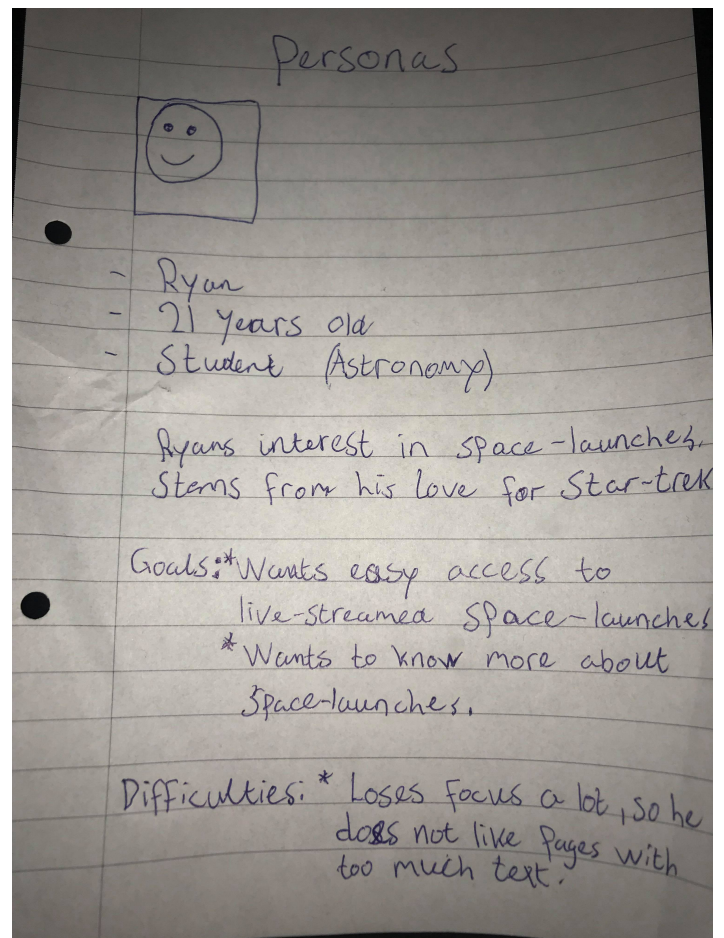 Personas
- Ryan
- 21 years old
- Student (Astronomy)
Ryans interest in space-launches.
Stems from his love for Star-trek
Goals:*Wants easy access to
live-streamed space-launches
*Wants to know more about
space-launches.
Difficulties: * Loses focus a lot, so he
does not like pages with
too much text.